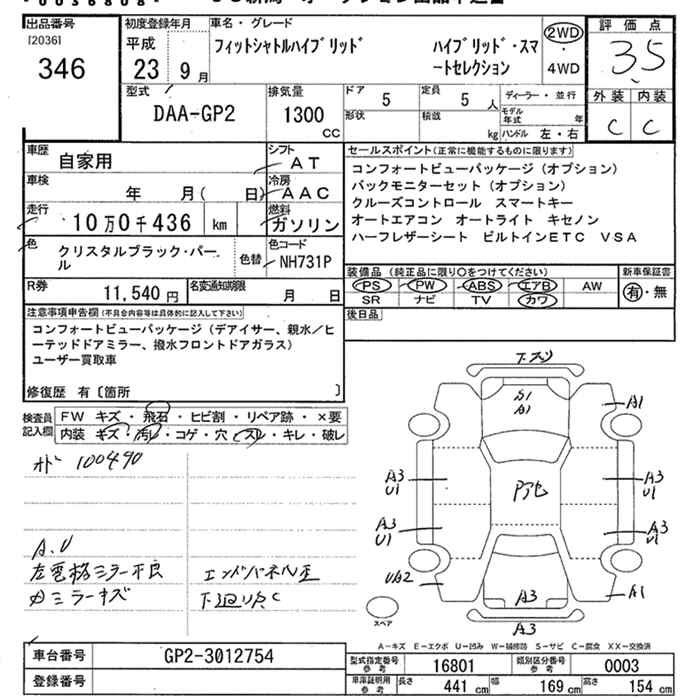 出品番号
[2036]
346
初度登録年月
平成
23年9月
車名・グレード
フィットシャトルハイブリッド
ハイブリッド・スマ
ートセレクション
2WD
・
4WD
評価点
3.5
外装 内装
C C
型式
DAA-GP2
排気量
1300
CC
ドア 5
形状
定員 5 人
積載 kg
ディーラー・並行
モデル年式 年
ハンドル 左・右
車歴
自家用
シフト
AT
車検
年 月( 日)
冷房
AAC
走行
10万0千436 km
燃料
ガソリン
色
クリスタルブラック・パー
ル
色替
色コード
NH731P
R券
11,540円
名変通知期限
月 日
セールスポイント(正常に機能するものに限ります)
コンフォートビューパッケージ(オプション)
バックモニターセット(オプション)
クルーズコントロール スマートキー
オートエアコン オートライト キセノン
ハーフレザーシート ビルトインETC VSA
装備品(純正品に限り○をつけてください)
新車保証書
PS PW ABS エアB AW
SR ナビ TV カワ
有・無
後日品
注意事項申告欄(不具合内容等は具体的に記入して下さい)
コンフォートビューパッケージ(デアイサー、親水/ヒ
ーテッドドアミラー、撥水フロントドアガラス)
ユーザー買取車
修復歴 有〔箇所 〕
検査員
記入欄
FW キズ・飛石・ヒビ割・リペア跡・×要
内装 キズ・汚レ・コゲ・穴・スレ・キレ・破レ
オド 100490
A.U
左電格ミラー不良
内ミラーキズ
エンドパネル歪
下廻りサC
下スリ
S1
A1
A1
A3
U1
A3
U1
A3
U1
A3
U1
UA2
A1
A3
A3
スペア
A−キズ E−エクボ U−凹み W−補修跡 S−サビ C−腐食 XX−交換済
車台番号
GP2-3012754
登録番号
型式指定番号
参考
16801
類別区分番号
参考
0003
車庫証明用
参考
長さ 441 cm
幅 169 cm
高さ 154 cm